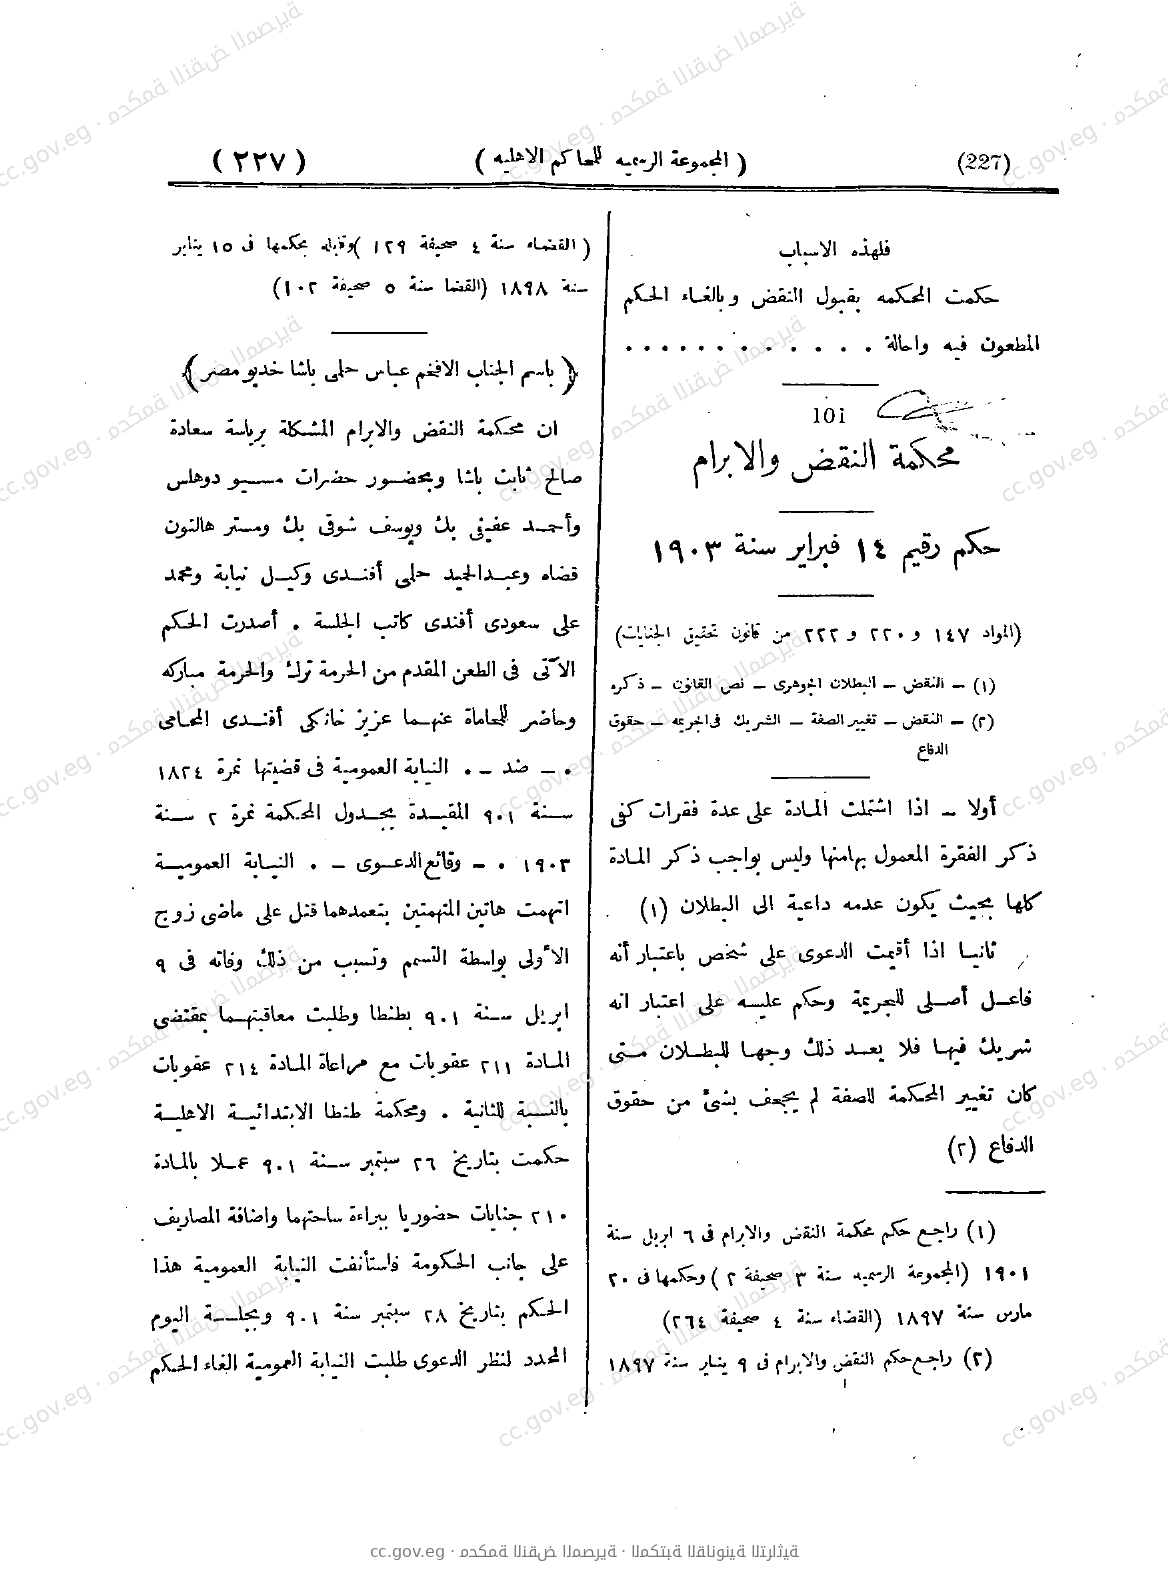 (227) ( المجموعة الرسميه للمحاكم الاهليه ) ( ٢٢٧ )
فلهذه الاسباب
حكمت المحكمه بقبول النقض وبالغاء الحكم
المطعون فيه واحالة . . . . . . . . . . . .
101
محكمة النقض والابرام
حكم رقيم ١٤ فبراير سنة ١٩٠٣
(المواد ١٤٧ و ٢٢٠ و ٢٢٢ من قانون تحقيق الجنايات)
(١) – النقض – البطلان الجوهرى – نص القانون – ذكره
(٢) – النقض – تغيير الصفة – الشريك فى الجريمه – حقوق
الدفاع
أولا – اذا اشتملت المادة على عدة فقرات كفى
ذكر الفقرة المعمول بهامنها وليس بواجب ذكر المادة
كلها بحيث يكون عدمه داعية الى البطلان (١)
ثانيا اذا أقيمت الدعوى على شخص باعتبار أنه
فاعل أصلى للجريمة وحكم عليه على اعتبار انه
شريك فيها فلا يعد ذلك وجها للبطلان متى
كان تغيير المحكمة للصفة لم يجحف بشئ من حقوق
الدفاع (٢)
(١) راجع حكم محكمة النقض والابرام فى ٦ ابريل سنة
١٩٠١ (المجموعة الرسميه سنة ٣ صحيفة ٢ ) وحكمها فى ٢٠
مارس سنة ١٨٩٧ (القضاء سنة ٤ صحيفة ٢٦٤)
(٢) راجع حكم النقض والابرام فى ٩ يناير سنة ١٨٩٧
( القضاء سنة ٤ صحيفة ١٢٩ )وقابله بحكمها فى ١٥ يناير
سنة ١٨٩٨ (القضا سنة ٥ صحيفة ١٠٢)
﴿ باسم الجناب الافخم عباس حلمى باشا خديو مصر ﴾
ان محكمة النقض والابرام المشكلة برياسة سعادة
صالح ثابت باشا وبحضور حضرات مسيو دوهلس
وأحمد عفيفى بك ويوسف شوقى بك ومستر هالتون
قضاه وعبدالمجيد حلمى أفندى وكيل نيابة ومحمد
على سعودى أفندى كاتب الجلسة . أصدرت الحكم
الآتى فى الطعن المقدم من الحرمة ترك والحرمة مباركه
وحاضر للمحاماة عنهما عزيز خانكى أفندى المحامى
. – ضد – . النيابة العمومية فى قضيتها نمرة ١٨٢٤
سنة ٩٠١ المقيدة بجدول المحكمة نمرة ٢ سنة
١٩٠٣ . – وقائع الدعوى – . النيابة العمومية
اتهمت هاتين المتهمتين بتعمدهما قتل على ماضى زوج
الأولى بواسطة التسمم وتسبب من ذلك وفاته فى ٩
ابريل سنة ٩٠١ بطنطا وطلبت معاقبتهما بمقتضى
المادة ٢١١ عقوبات مع مراعاة المادة ٢١٤ عقوبات
بالنسبة للثانية . ومحكمة طنطا الابتدائية الاهلية
حكمت بتاريخ ٢٦ سبتمبر سنة ٩٠١ عملا بالمادة
٢١٠ جنايات حضوريا ببراءة ساحتهما واضافة المصاريف
على جانب الحكومة فاستأنفت النيابة العمومية هذا
الحكم بتاريخ ٢٨ سبتمبر سنة ٩٠١ وبجلسة اليوم
المحدد لنظر الدعوى طلبت النيابة العمومية الغاء الحكم
cc.gov.eg · محكمة النقض المصرية · المكتبة القانونية التراثية